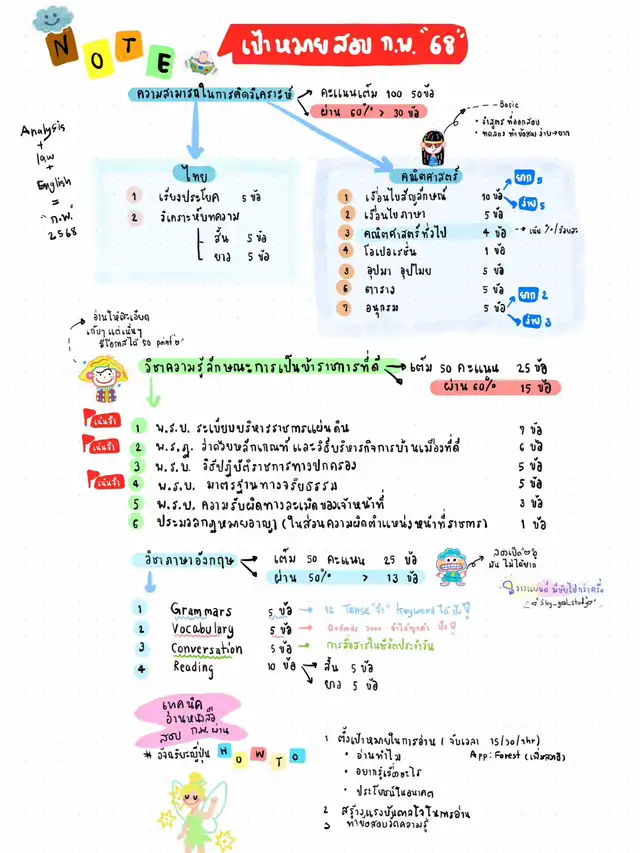 NOTE
เป้าหมายสอบ ก.พ. "68"
ความสามารถในการคิดวิเคราะห์ → คะแนนเต็ม 100 50 ข้อ
ผ่าน 60% > 30 ข้อ
Basic
• จำสูตรที่ออกสอบ
Analysis
+
law
+
English
=
"ก.พ."
2568
ไทย
1 เรียงประโยค 5 ข้อ
2 วิเคราะห์บทความ
สั้น 5 ข้อ
ยาว 5 ข้อ
คณิตศาสตร์
1 เงื่อนไขสัญลักษณ์ 10 ข้อ
ยาก 5
ง่าย 5
2 เงื่อนไขภาษา 5 ข้อ
3 คณิตศาสตร์ทั่วไป 4 ข้อ → เน้น %/ร้อยละ
4 โอเปอเรชั่น 1 ข้อ
5 อุปมา อุปไมย 5 ข้อ
6 ตาราง 5 ข้อ
7 อนุกรม 5 ข้อ
ยาก 2
ง่าย 3
อ่านให้ละเอียด
มีโอกาสได้ 50 point
วิชาความรู้ลักษณะการเป็นข้าราชการที่ดี → เต็ม 50 คะแนน 25 ข้อ
ผ่าน 60% 15 ข้อ
เน้นจ้า 1 พ.ร.บ. ระเบียบบริหารราชการแผ่นดิน 7 ข้อ
เน้นจ้า 2 พ.ร.ฎ. ว่าด้วยหลักเกณฑ์และวิธีบริหารกิจการบ้านเมืองที่ดี 6 ข้อ
3 พ.ร.บ. วิธีปฏิบัติราชการทางปกครอง 5 ข้อ
เน้นจ้า 4 พ.ร.บ. มาตรฐานทางจริยธรรม 5 ข้อ
5 พ.ร.บ. ความรับผิดทางละเมิดของเจ้าหน้าที่ 3 ข้อ
6 ประมวลกฎหมายอาญา (ในส่วนความผิดตำแหน่งหน้าที่ราชการ) 1 ข้อ
วิชาภาษาอังกฤษ → เต็ม 50 คะแนน 25 ข้อ
ผ่าน 50% > 13 ข้อ
มันไม่ได้ยาก
1 Grammars 5 ข้อ → 12 Tense "จำ" keyword ได้ ปัง!
2 Vocabulary 5 ข้อ → Oxfords 3000 จำได้ทุกคำ ปัง!
3 Conversation 5 ข้อ → การสื่อสารในชีวิตประจำวัน
4 Reading 10 ข้อ
สั้น 5 ข้อ
ยาว 5 ข้อ
เทคนิค
อ่านหนังสือ
สอบ ก.พ. ผ่าน
* อัจฉริยะญี่ปุ่น HOWTO
1 ตั้งเป้าหมายในการอ่าน (จับเวลา 15/30/1hr)
App: Forest (เพิ่มสมาธิ)
• อ่านทำไม
• อยากรู้เรื่องอะไร
• ประโยชน์ในอนาคต
2 สร้างแรงบันดาลใจในการอ่าน
3 ทำข้อสอบวัดความรู้